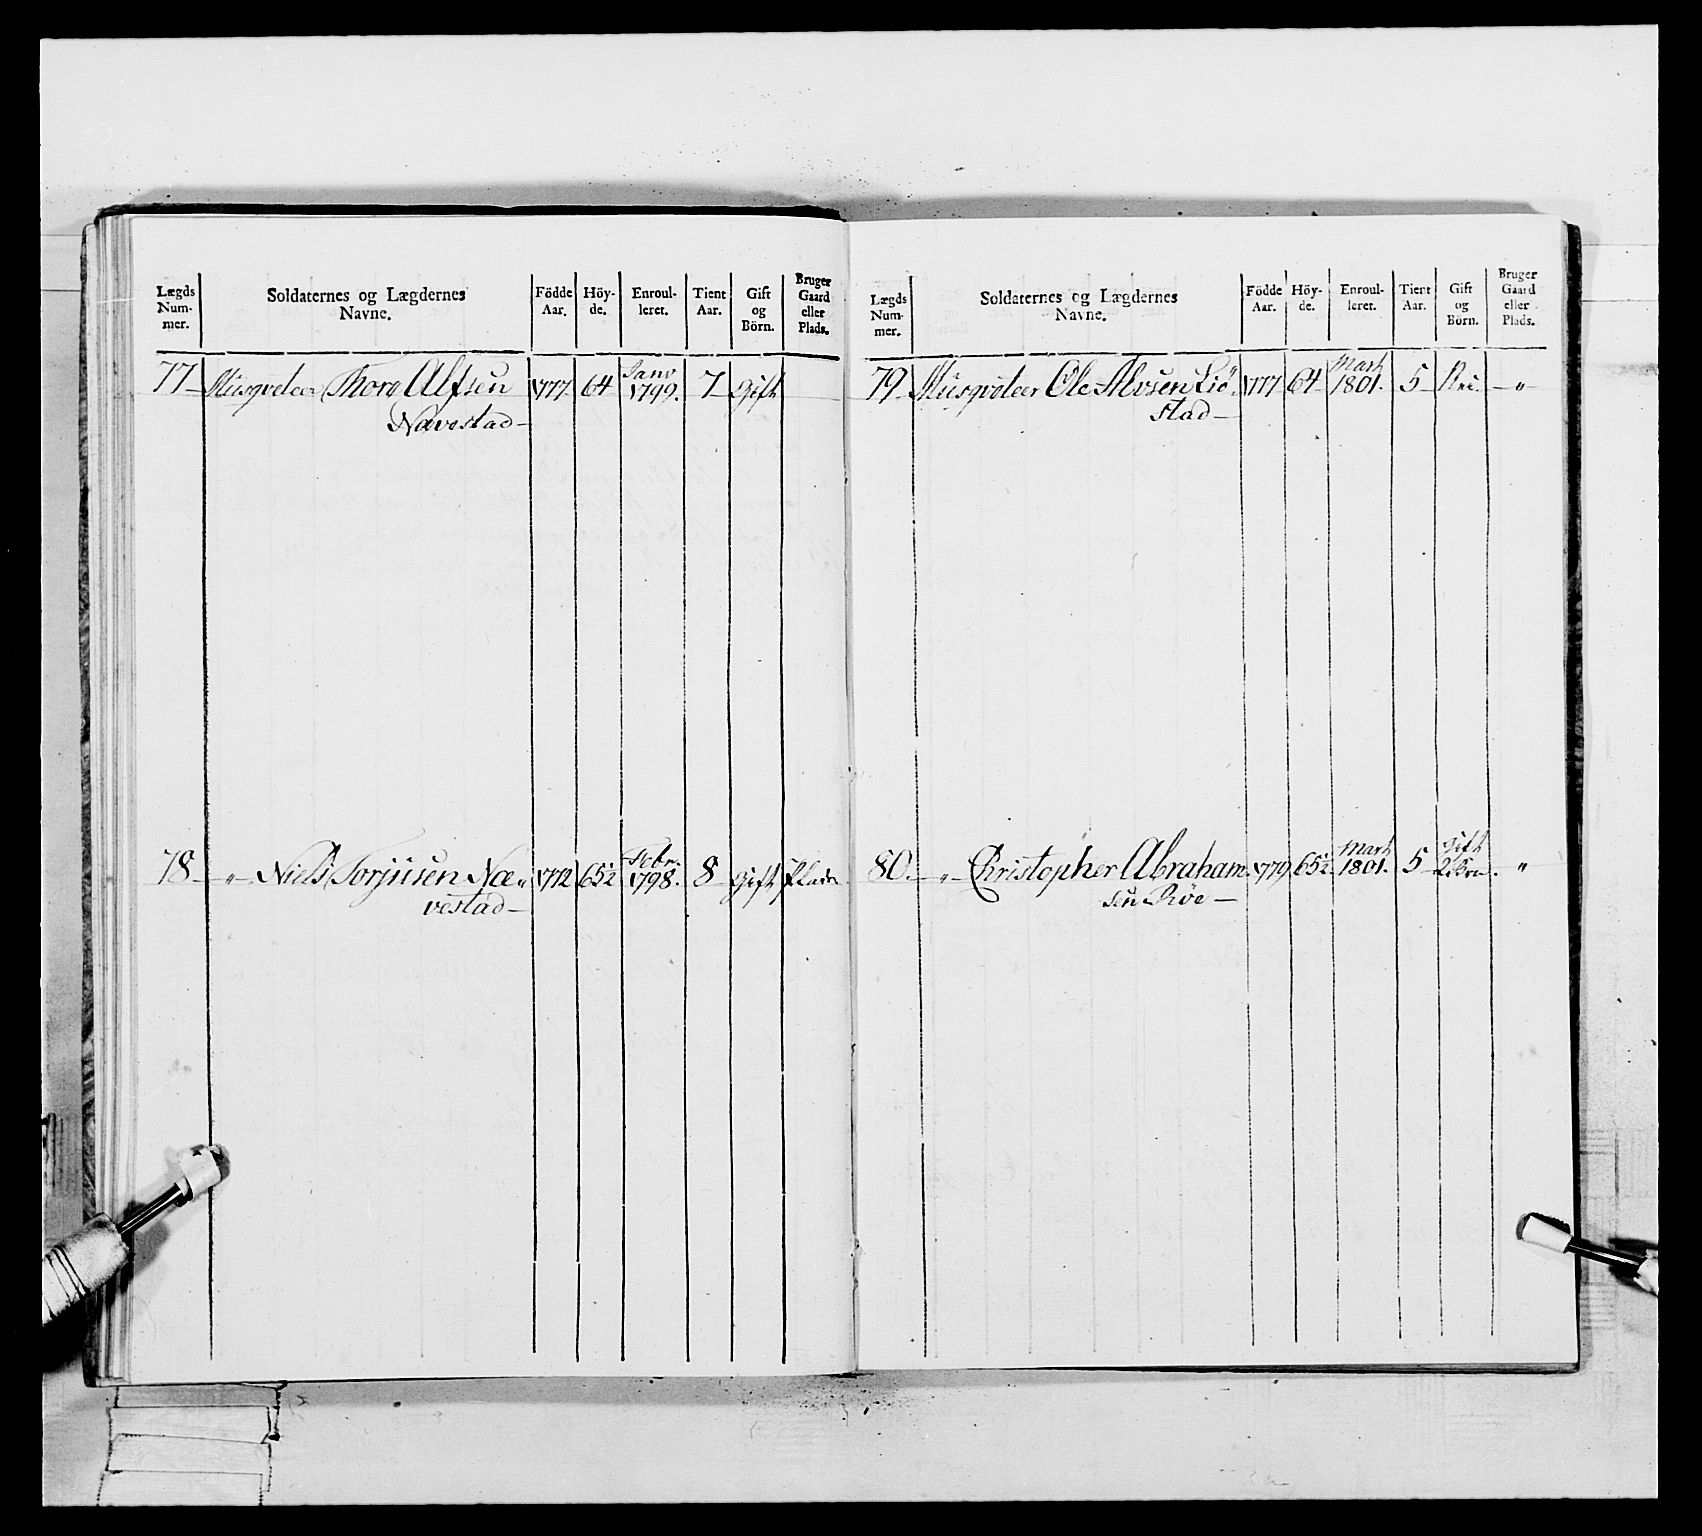 Lægds Num- mer. | Soldaternes og Lægdernes Navne. | Födde Aar. | Höy- de. | Enroul- leret. | Tient Aar. | Gift og Börn. | Bruger Gaard eller Plads.
77 | Musqveteer Thore Alfsen | 1777 | 64 | Janv 1799. | 7 | Gift
Navestad
78 | " Niels Torjusen Næ | 1772 | 65½ | Febr. 1798. | 8 | Gift | Plads
vestad
Lægds Num- mer. | Soldaternes og Lægdernes Navne. | Födde Aar. | Höy- de. | Enroul- leret. | Tient Aar. | Gift og Börn. | Bruger Gaard eller Plads.
79 | Musqveteer Ole Alvsen Liö | 1777 | 64 | Mart 1801. | 5 | "
stad
80. | " Christopher Abraham | 1779 | 65½ | Mart 1801. | 5 | Gift | "
sen Röe